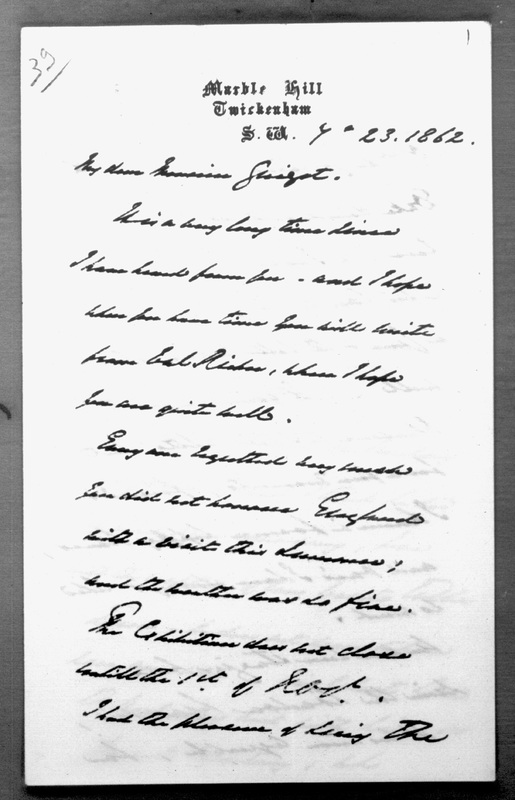 39
1
Marble Hill
Twickenham
S. W. 7º 23. 1862.
My dear Monsieur Guizot.
It is a very long time since
I have heard from you - and I hope
when you have time you will write
from Val Richer, where I hope
you are quite well.
Every one regretted very much
you did not honour England
with a visit this Summer;
and the weather was so fine.
The Exhibition does not close
untill the 1st. of Nov.
I had the pleasure of seeing The